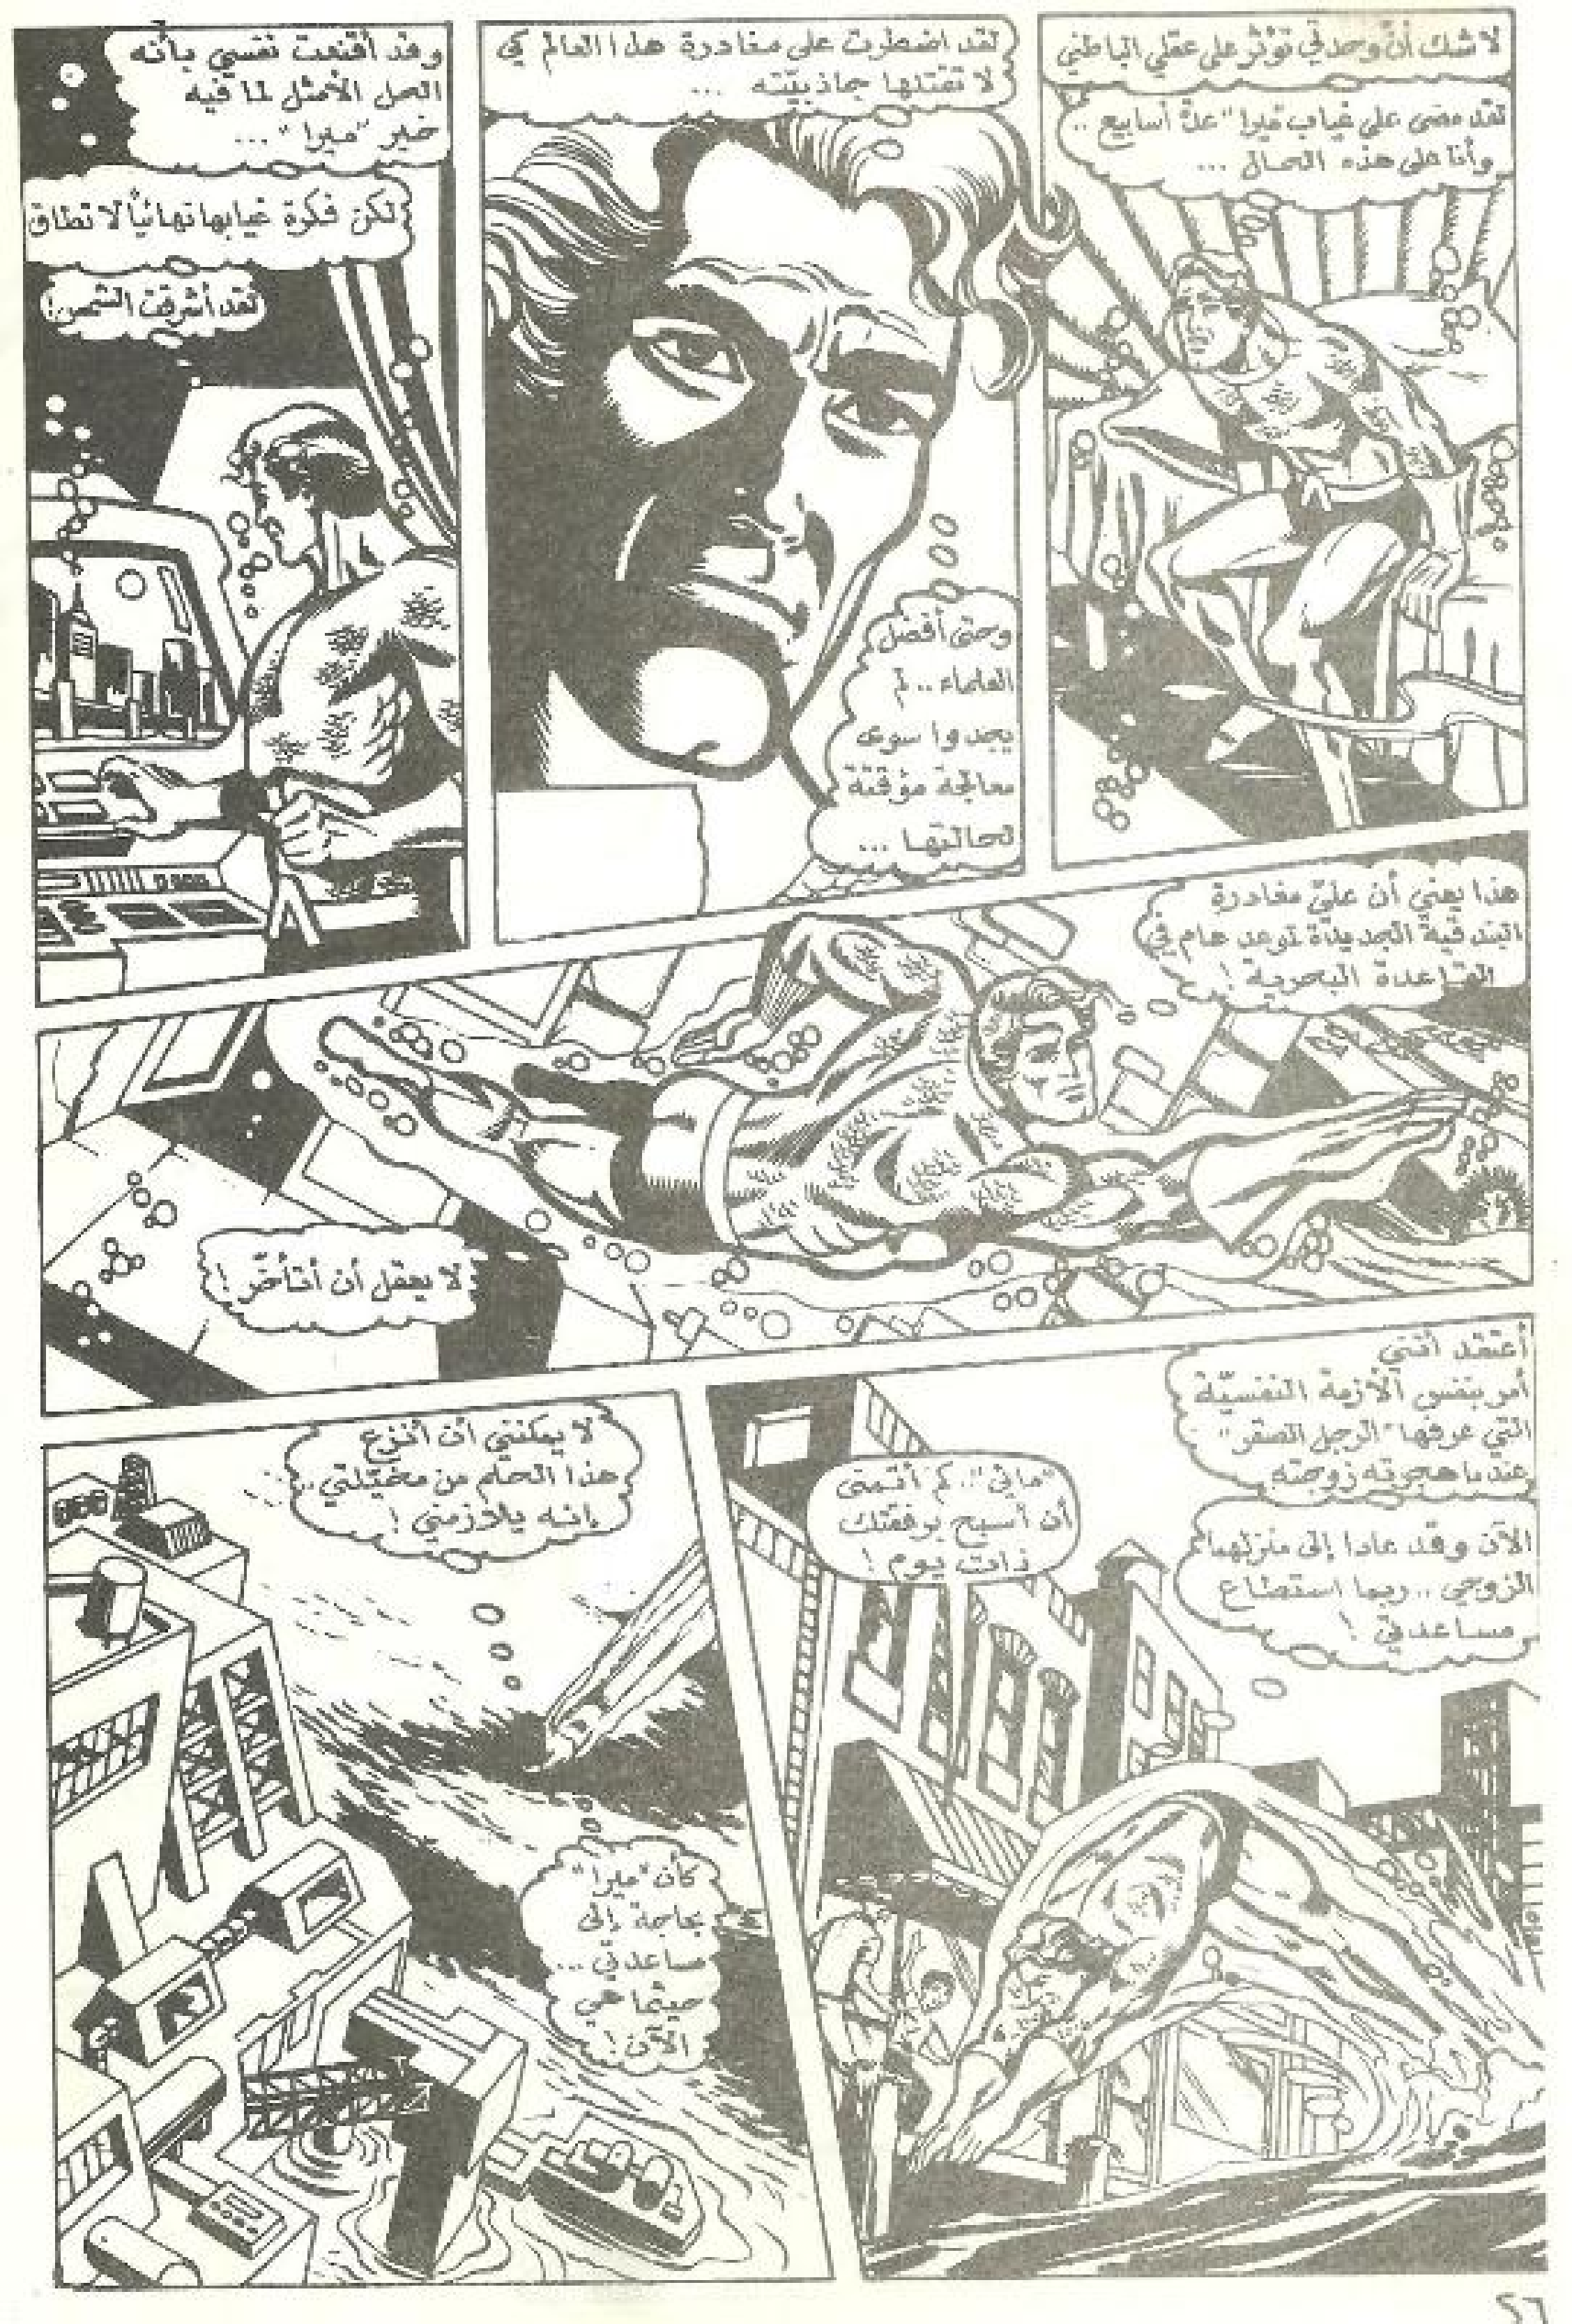 لا شك أنّ وحدتي تؤثر على عقلي الباطني
لقد مضى على غياب "ميرا" عدة أسابيع ..
وأنا على هذه الحال ...
لقد اضطرت على مغادرة هذا العالم كي
لا تقتلها جاذبيّته ...
وحتى أفضل
العلماء .. لم
يجدوا سوى
معالجة مؤقتة
لحالتها ...
وقد أقنعت نفسي بأنه
الحل الأمثل لما فيه
خير "ميرا" ...
لكن فكرة غيابها نهائياً لا تطاق
لقد أشرقت الشمس !
هذا يعني أن عليّ مغادرة
البندقية الجديدة لموعد هام في
القاعدة البحرية !
لا يعقل أن أتأخّر !
أعتقد أنني
أمر بنفس الأزمة النفسيّة
التي عرفها "الرجل الصقر"
عندما هجرته زوجته
الآن وقد عادا إلى منزلهما
الزوجي .. ربما استطاع
مساعدتي !
كم أتمنى
أن أسبح برفقتك
ذات يوم !
لا يمكنني أن أنزع
هذا الحلم من مخيّلتي ..
إنه يلازمني !
كأن "ميرا"
بحاجة إلى
مساعدتي ...
حيثما هي
الآن !
٤٦